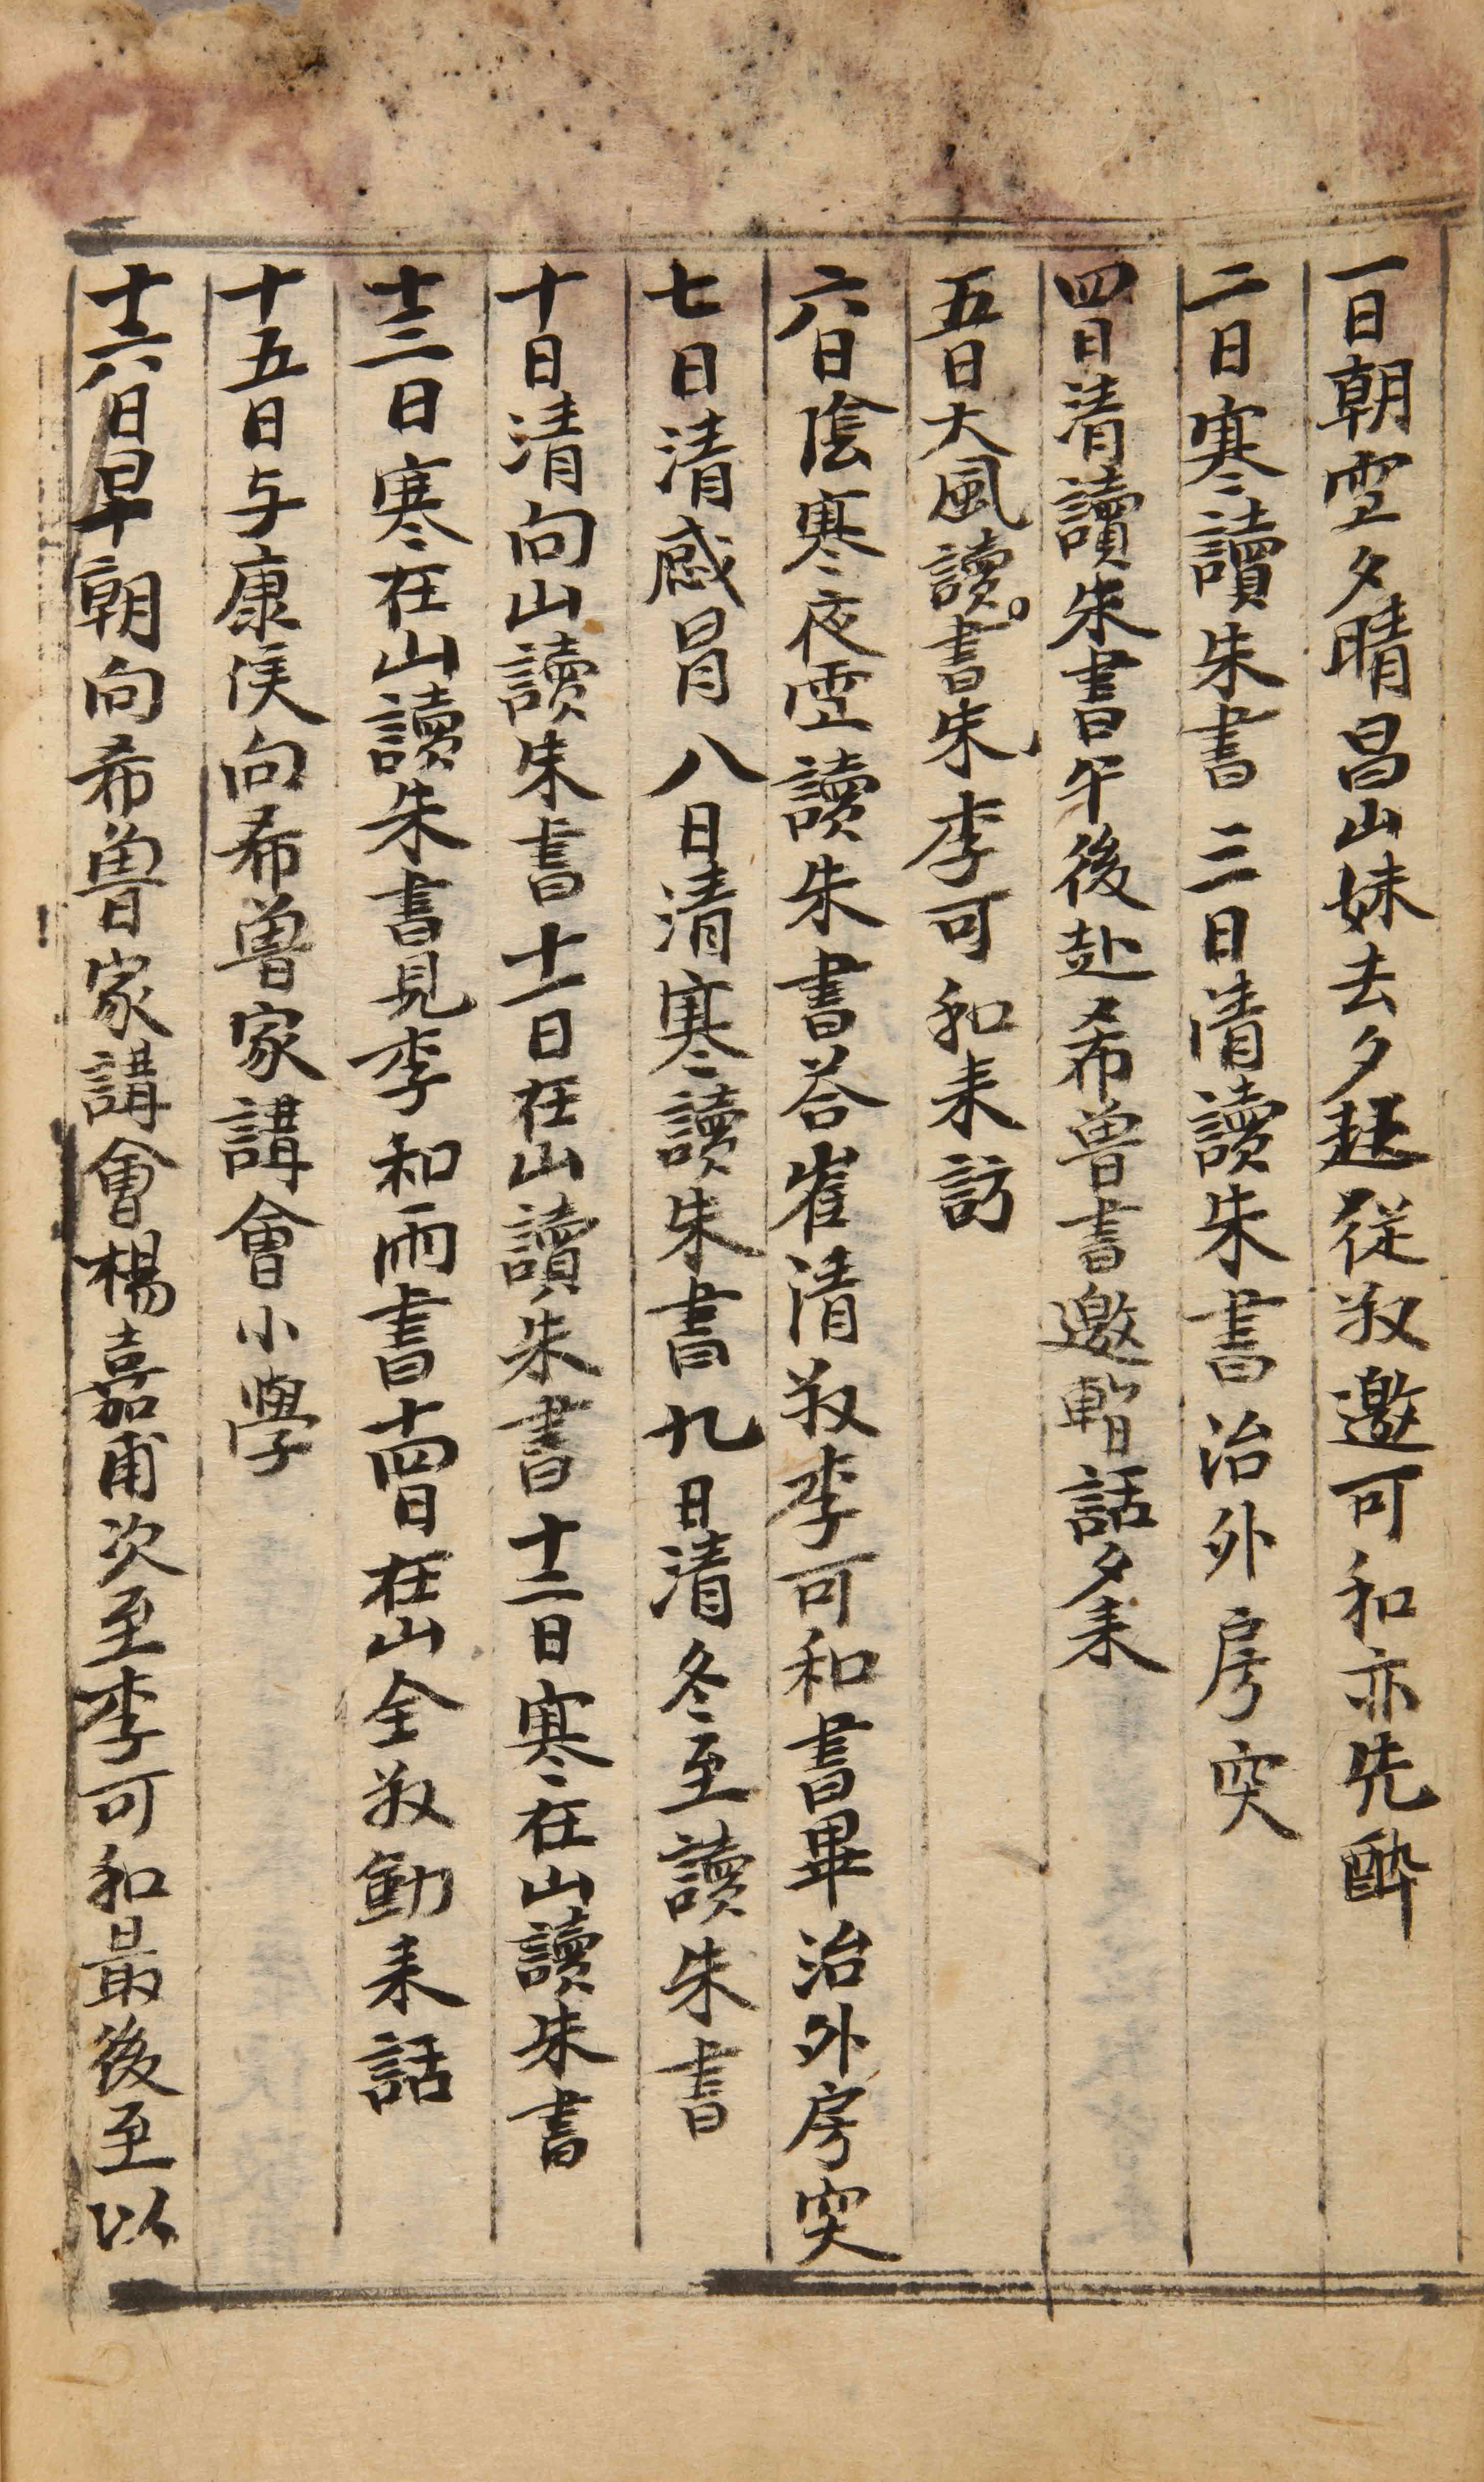 一日朝雪夕晴昌山妹去夕趂從叔邀可和亦先醉
二日寒讀朱書三日清讀朱書治外房突
四日清讀朱書午後赴希魯書邀暫話夕来
五日大風讀書朱李可和来訪
六日陰寒夜雪讀朱書答崔清叔李可和書畢治外房突
七日清感冒八日清寒讀朱書九日清冬至讀朱書
十日清向山讀朱書十一日在山讀朱書十二日寒在山讀朱書
十三日寒在山讀朱書見李和而書十四日在山全叔動来話
十五日与康侯向希魯家講會小學
十六日早朝向希魯家講會楊嘉甫次至李可和最後至以